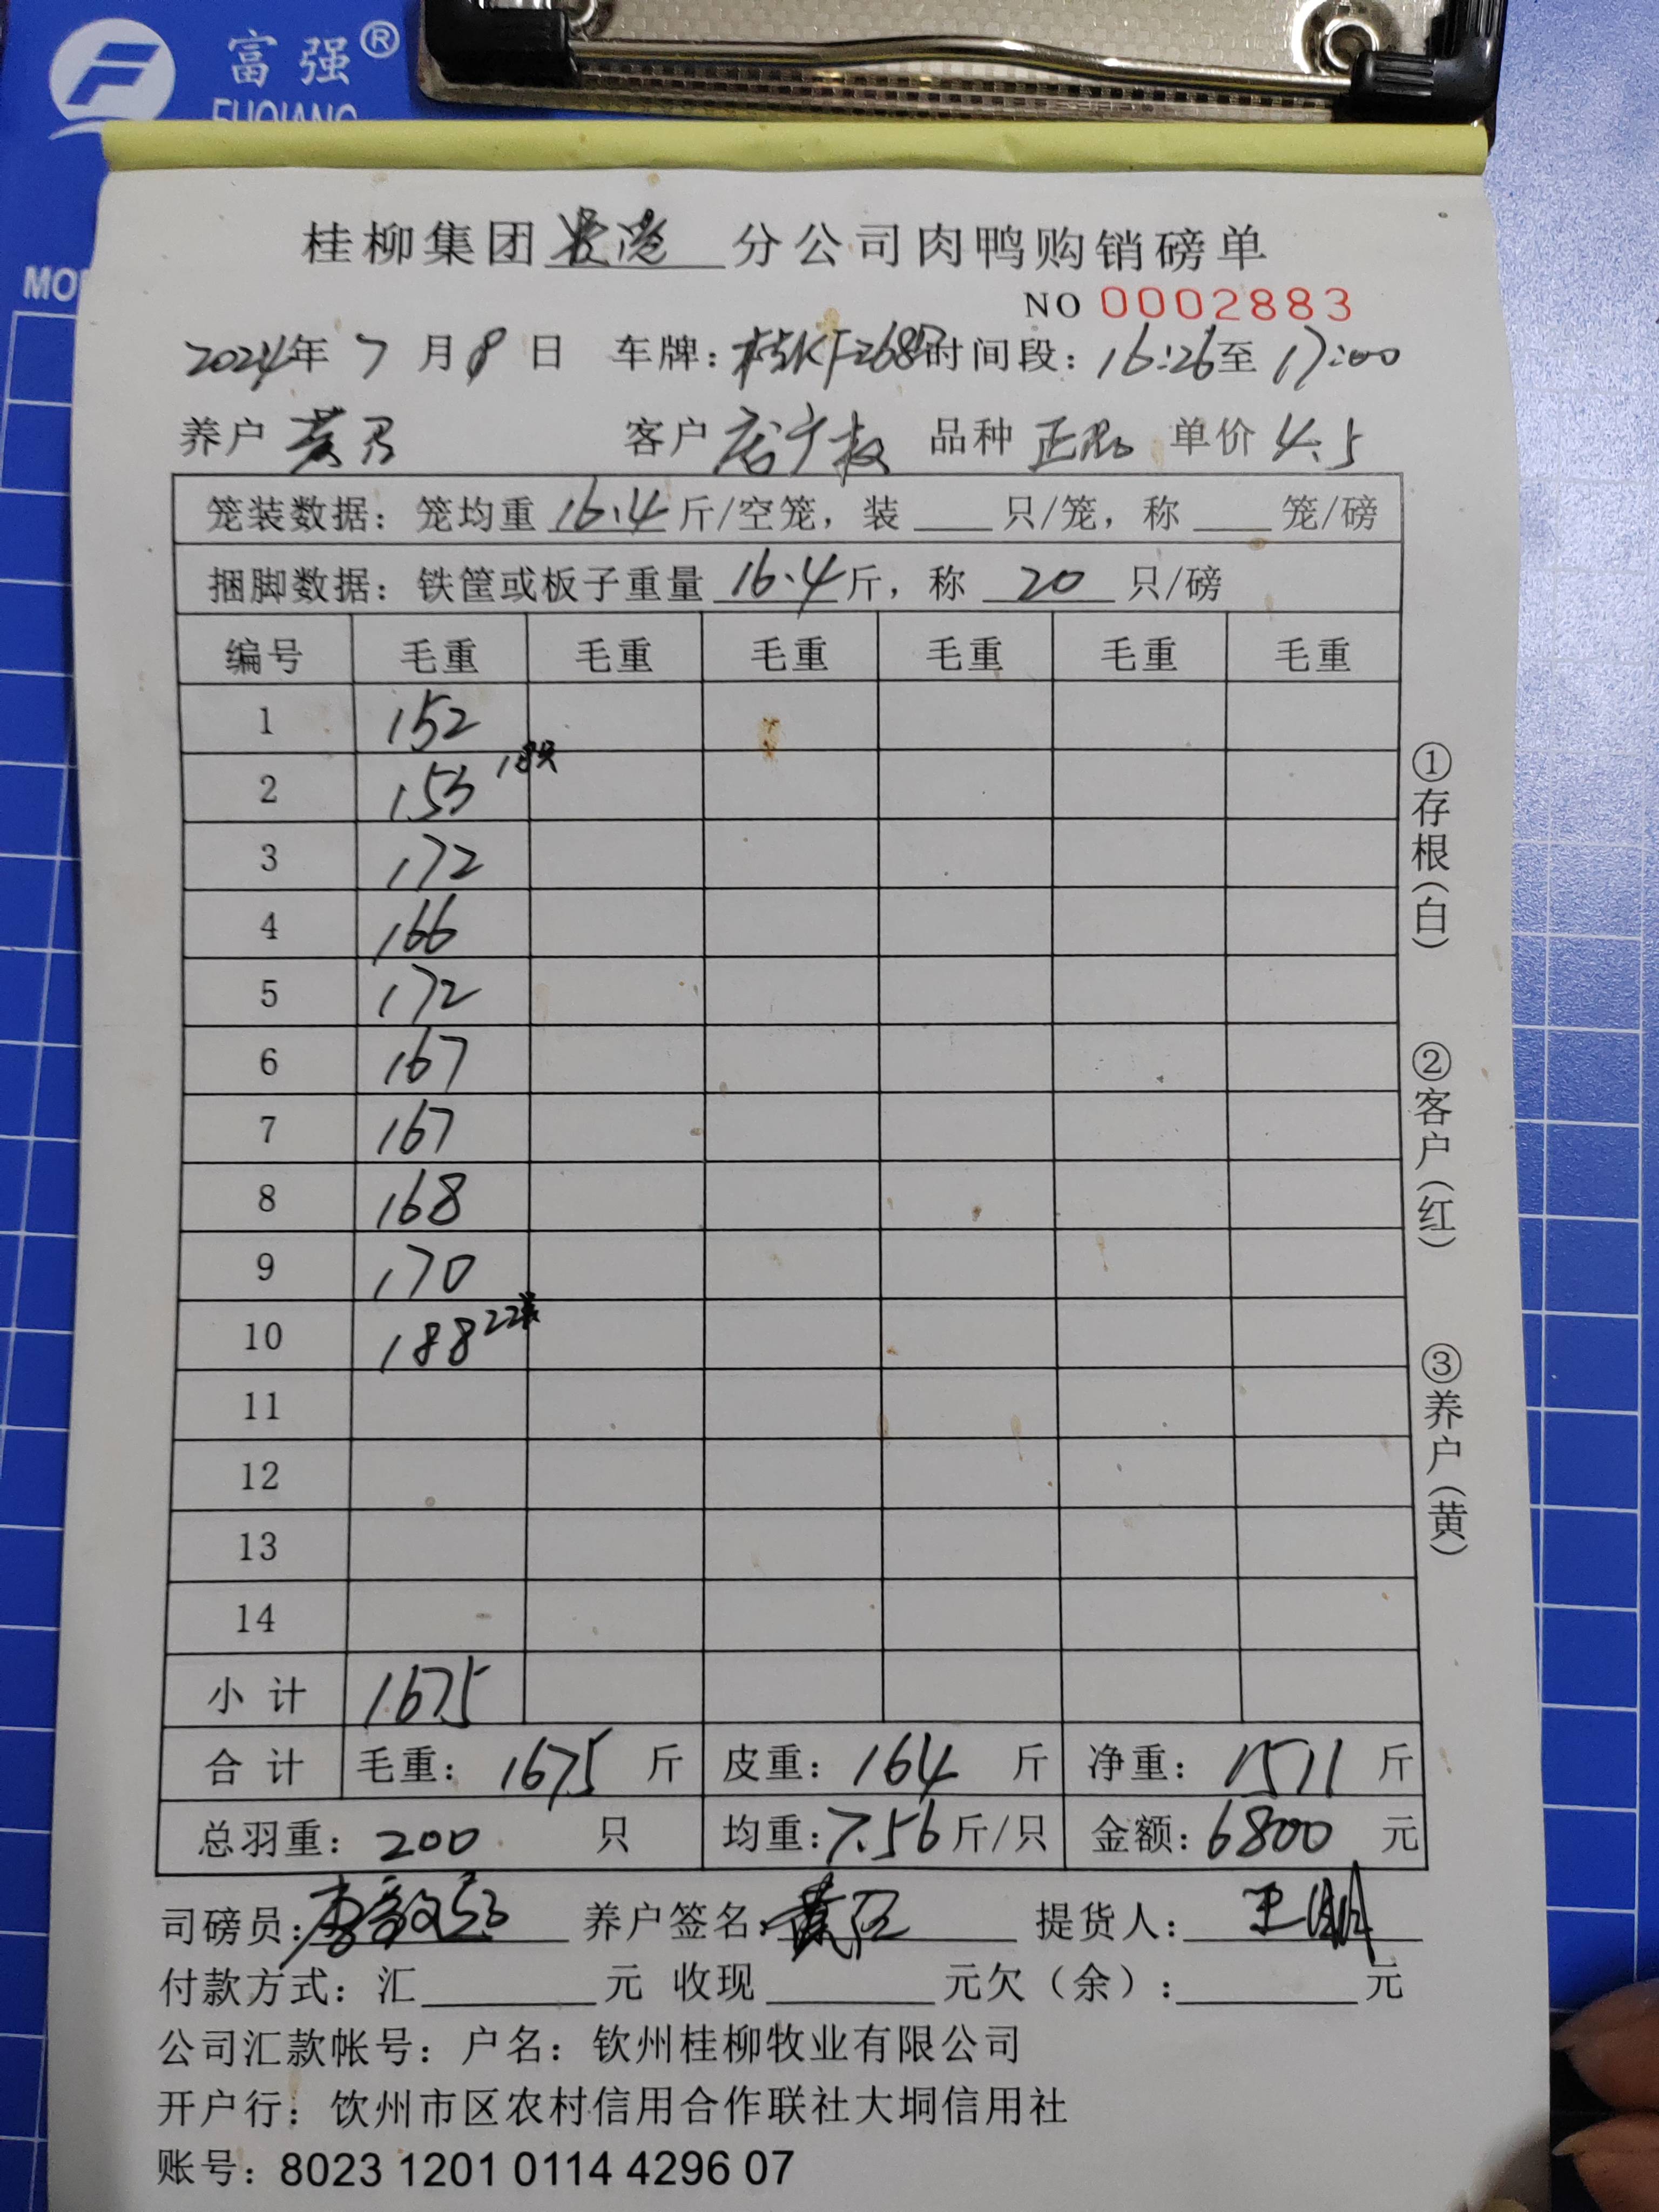 富强®
FUQIANG
MO
桂柳集团 贵港 分公司肉鸭购销磅单
NO 0002883
2024年 7 月 8 日 车牌: 桂KF268 时间段: 16:26至 17:00
养户 黄 客户 品种 正品 单价 4.5
笼装数据: 笼均重 16.4 斤/空笼, 装 只/笼, 称 笼/磅
捆脚数据: 铁筐或板子重量 16.4 斤, 称 20 只/磅
编号 毛重 毛重 毛重 毛重 毛重 毛重
1 152
2 153 18只
3 172
4 166
5 172
6 167
7 167
8 168
9 170
10 188 22只
11
12
13
14
小 计 1675
合 计 毛重: 1675 斤 皮重: 164 斤 净重: 1511 斤
总羽重: 200 只 均重: 7.56 斤/只 金额: 6800 元
司磅员: 养户签名: 黄 提货人: 王
付款方式: 汇 元 收现 元欠（余）: 元
公司汇款帐号: 户名: 钦州桂柳牧业有限公司
开户行: 饮州市区农村信用合作联社大垌信用社
账号: 8023 1201 0114 4296 07
①存根（白）
②客户（红）
③养户（黄）